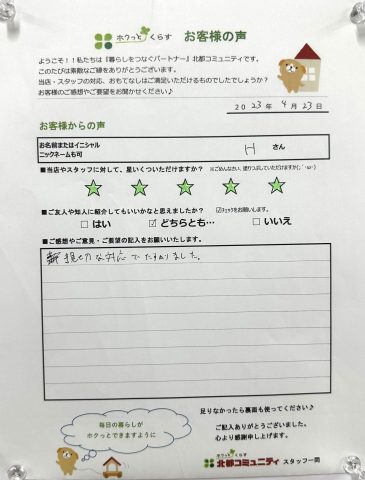 ホクっと くらす お客様の声
ようこそ!!私たちは『暮らしをつなぐパートナー』北都コミュニティです。
このたびは素敵なご縁をありがとうございます。
当店・スタッフの対応、おもてなしはご満足いただけるものでしたでしょうか?
お客様のご感想やご要望をお聞かせください♪
2023年4月23日
お客様からの声
お名前またはイニシャル
ニックネームも可
H さん
■当店やスタッフに対して、星いくついただけますか?
■ご友人や知人に紹介してもいいかなと思えましたか? ☑チェックをお願いします。
□ はい ☑ どちらとも… □ いいえ
■ご感想やご意見・ご要望の記入をお願いします。
親切な対応でたすかりました。
足りなかったら裏面も使ってください♪
毎日の暮らしが
ホクっとできますように
ご記入ありがとうございました。
心より感謝申し上げます。
ホクっと くらす
北都コミュニティ スタッフ一同